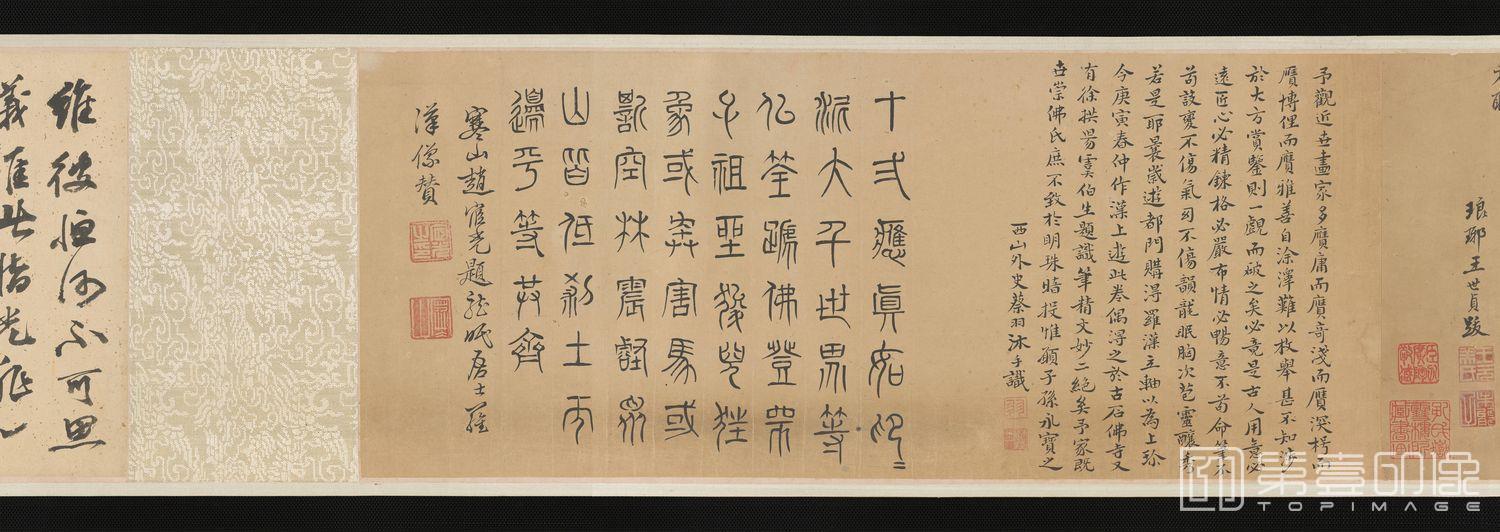 琅琊王世貞跋
予觀近世畫家多贋庸而贋奇淺而贋深拐而
贋博俚而贋雅善自塗澤難以枚舉甚不知涉
於大方賞鑒則一覰而破之矣必竟是古人用意必
遠匠心必精鍊格必嚴布情必暢意不苟命筆不
苟設變不傷氣幻不傷韻龍眠胸次苞靈釀秀
若是耶曩歲遊都門購得羅漢立軸以為上珍
今庚寅春仲作溪上遊此卷偶得之於古石佛寺又
有徐拱晹虞伯生題識筆精文妙二絕矣予家既
世崇佛氏庶不致於明珠暗投惟願子孫永寶之
西山外史蔡羽沐手識
十弌應真如
派大千世界等
公荃蹏佛登帚
毛祖聖發兕狂
象或奔害馬或
斷空林震壑眾
山皆低剎土丙
邊平等共齊
寒山趙宧光題龍眠居士羅
漢像贊
維彼恒河不可思
義唯此惜光
第壹印象
TOPIMAGE